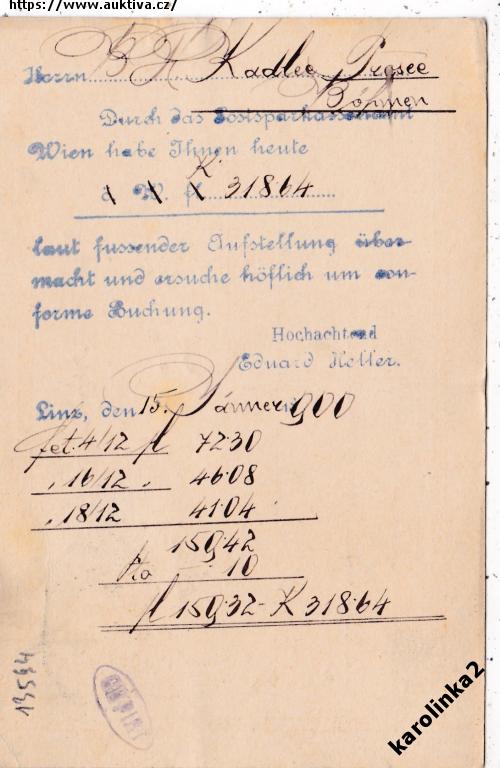 https://www.auktiva.cz/
Herrn B R Kadlec Prosec
Böhmen
Durch das Postsparkassenamt
Wien habe Ihnen heute
K
ö W. fl 318 64
laut fussender Aufstellung über-
macht und ersuche höflich um con-
forme Buchung.
Hochachtend
Eduard Keller.
Linz, den 15. Jänner 900
fct. 4/12 fl 72·30
" 16/12 " 46·08
" 18/12 41·04
159·42
10
fl 159·32 - K 318·64
13594
karolinka2